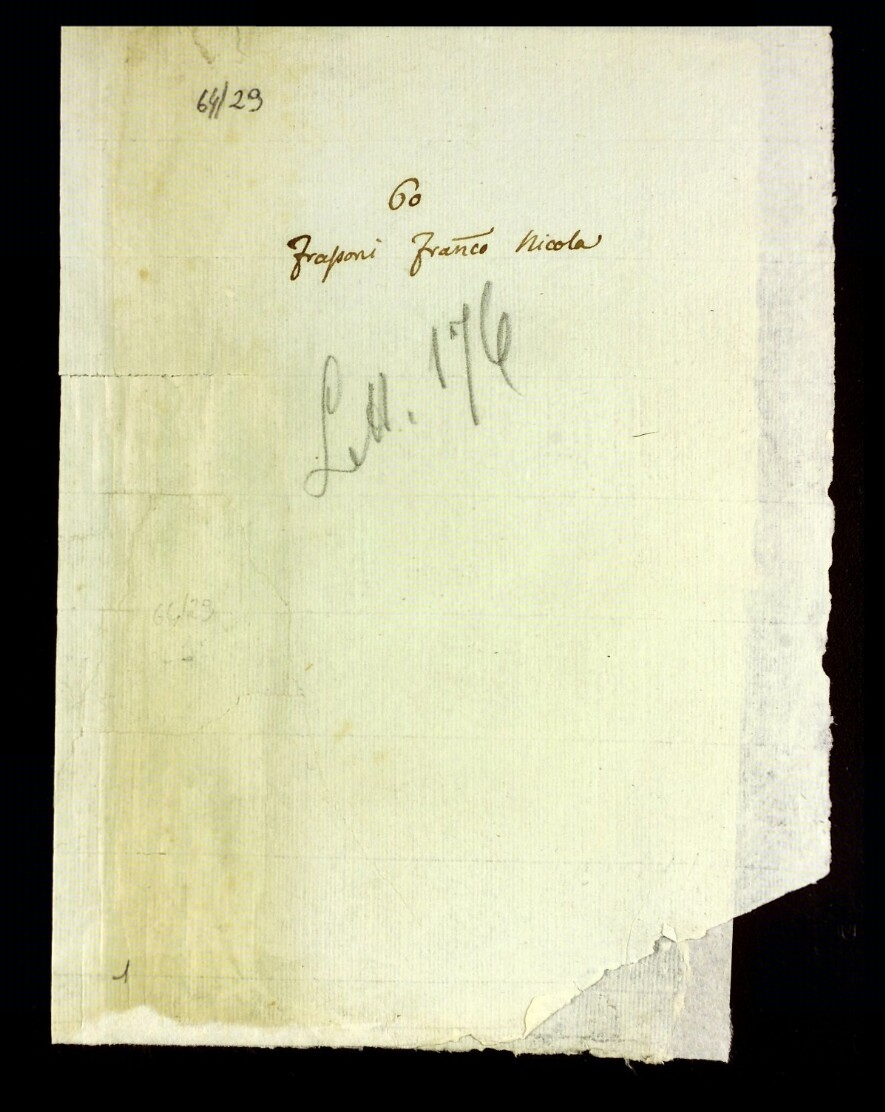 64/29
60
Fraſsoni Franc̄o Nicola
Lett. 176
64/29
1